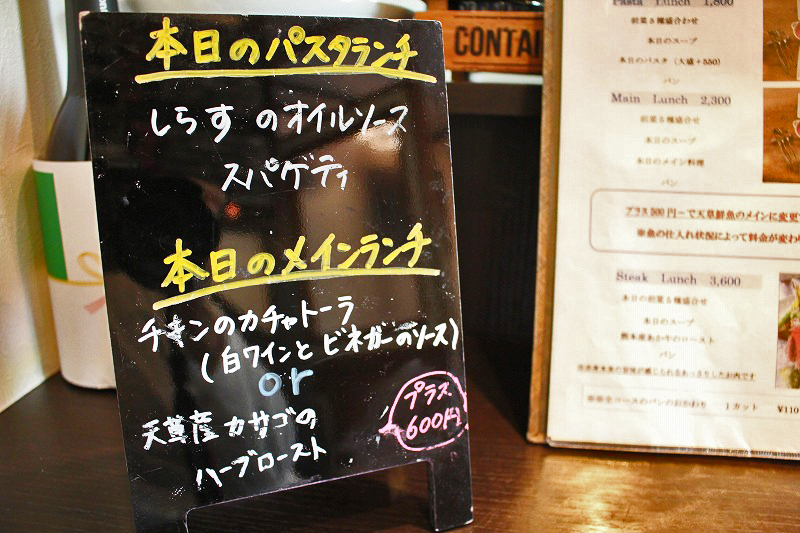 本日のパスタランチ
しらすのオイルソース
スパゲティ
本日のメインランチ
チキンのカチャトーラ
(白ワインとビネガーのソース)
or
天草産カサゴの
ハーブロースト
プラス
600円
CONTAI
Pasta Lunch 1,800
前菜8種盛合わせ
本日のスープ
本日のパスタ (大盛+550)
パン
Main Lunch 2,300
前菜8種盛合せ
本日のスープ
本日のメイン料理
パン
プラス500円~で天草鮮魚のメインに変更
※魚の仕入れ状況によって料金が変わ
Steak Lunch 3,600
本日の前菜8種盛合せ
本日のスープ
熊本産あか牛のロースト
パン
赤身本来の旨味が感じられるあっさりしたお肉です
※※全コースのパンのおかわり 1カット ¥110